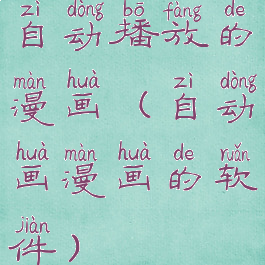 zì dòng bō fàng de
自动播放的
màn huà zì dòng
漫画(自动
huà màn huà de ruǎn
画漫画的软
jiàn
件)